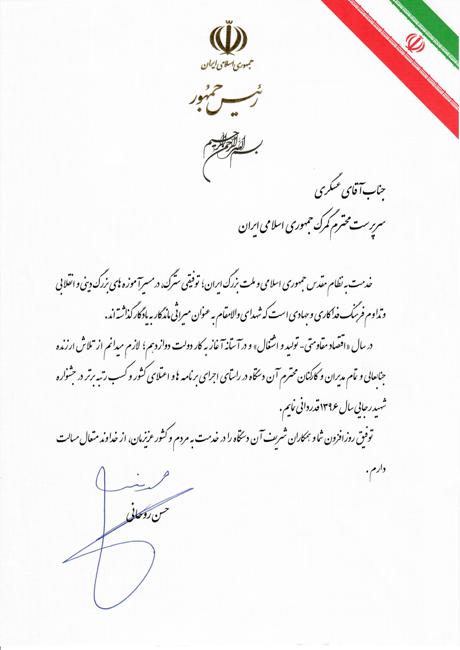 جمهوری اسلامی ایران
رئیس جمهور
بسم الله الرحمن الرحیم
جناب آقای عسگری
سرپرست محترم گمرک جمهوری اسلامی ایران
خدمت به نظام مقدس جمهوری اسلامی و ملت بزرگ ایران؛ توفیقی سترگ، در مسیر آموزه های بزرگ دینی و انقلابی
و تداوم فرهنگ فداکاری و جهادی است که شهدای والامقام به عنوان میراثی ماندگار به یادگار گذاشته‌اند.
در سال «اقتصاد مقاومتی- تولید و اشتغال» و در آستانه آغاز به کار دولت دوازدهم؛ لازم میدانم از تلاش ارزنده
جنابعالی و تمام مدیران و کارکنان محترم آن دستگاه در راستای اجرای برنامه ها و اعتلای کشور و کسب رتبه برتر در جشنواره
شهید رجایی سال ۱۳۹۶ قدردانی نمایم.
توفیق روزافزون شما و همکاران شریف آن دستگاه را در خدمت به مردم و کشور عزیزمان، از خداوند متعال مسالت
دارم.
حسن روحانی